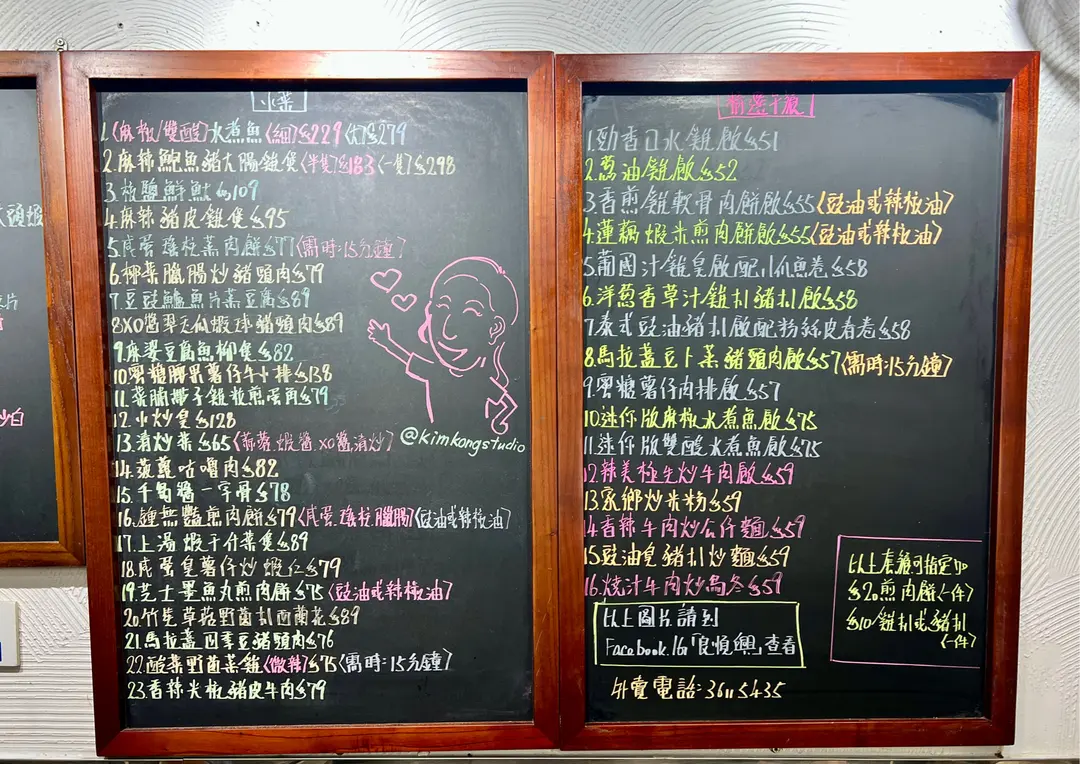 太頭蝦
片
炒白
小菜
1.〈麻椒/雙酸〉水煮魚〈細〉$229〈大〉$279
2.麻辣鮑魚豬大腸雞煲〈半隻〉$183〈一隻〉$298
3.椒鹽鮮魷$109
4.麻辣豬皮雞煲$95
5.咸蛋瑤柱蒸肉餅$77〈需時:15分鐘〉
6.椰菜臘腸炒豬頸肉$79
7.豆豉鱸魚片蒸豆腐$89
8.XO醬翠玉瓜蝦球豬頸肉$89
9.麻婆豆腐魚柳煲$82
10.蜜糖腰果薯仔牛小排$138
11.菜脯椰子雞粒煎蛋角$79
12.小炒皇$128
13.清炒菜$65〈蒜蓉.蝦醬.XO醬.清炒〉
14.菠蘿咕嚕肉$82
15.千島醬一字骨$78
16.鍾無艷煎肉餅$79〈咸蛋.瑤柱.臘腸〉〈豉油或辣椒油〉
17.上湯蝦干什菜煲$89
18.咸蛋皇薯仔炒蝦仁$79
19.芝士墨魚丸煎肉餅$75〈豉油或辣椒油〉
20.竹笙草菇野菌扒西蘭花$89
21.馬拉盞四季豆豬頸肉$76
22.酸菜野菌蒸雞〈微辣〉$75〈需時:15分鐘〉
23.香辣米椒豬皮牛肉$79
@kimkongstudio
精選干飯
1.勁香口水雞飯$51
2.蔥油雞飯$52
3.香煎雞軟骨肉餅飯$55〈豉油或辣椒油〉
4.蓮藕蝦米煎肉餅飯$55〈豉油或辣椒油〉
5.葡國汁雞皇飯配八爪魚卷$58
6.洋蔥香草汁雞扒豬扒飯$58
7.泰式豉油豬扒飯配粉絲皮春卷$58
8.馬拉盞豆卜蒸豬頸肉飯$57〈需時:15分鐘〉
9.蜜糖薯仔肉排飯$57
10.迷你版麻椒水煮魚飯$75
11.迷你版雙酸水煮魚飯$75
12.辣美極生炒牛肉飯$59
13.家鄉炒米粉$59
14.香辣牛肉炒公仔麵$59
15.豉油皇豬扒炒麵$59
16.燒汁牛肉炒烏冬$59
以上圖片請到
Facebook.IG「良悅興」查看
外賣電話:36115435
以上套餐可指定加
$20煎肉餅〈一件〉
$10/雞扒或豬扒
〈一件〉